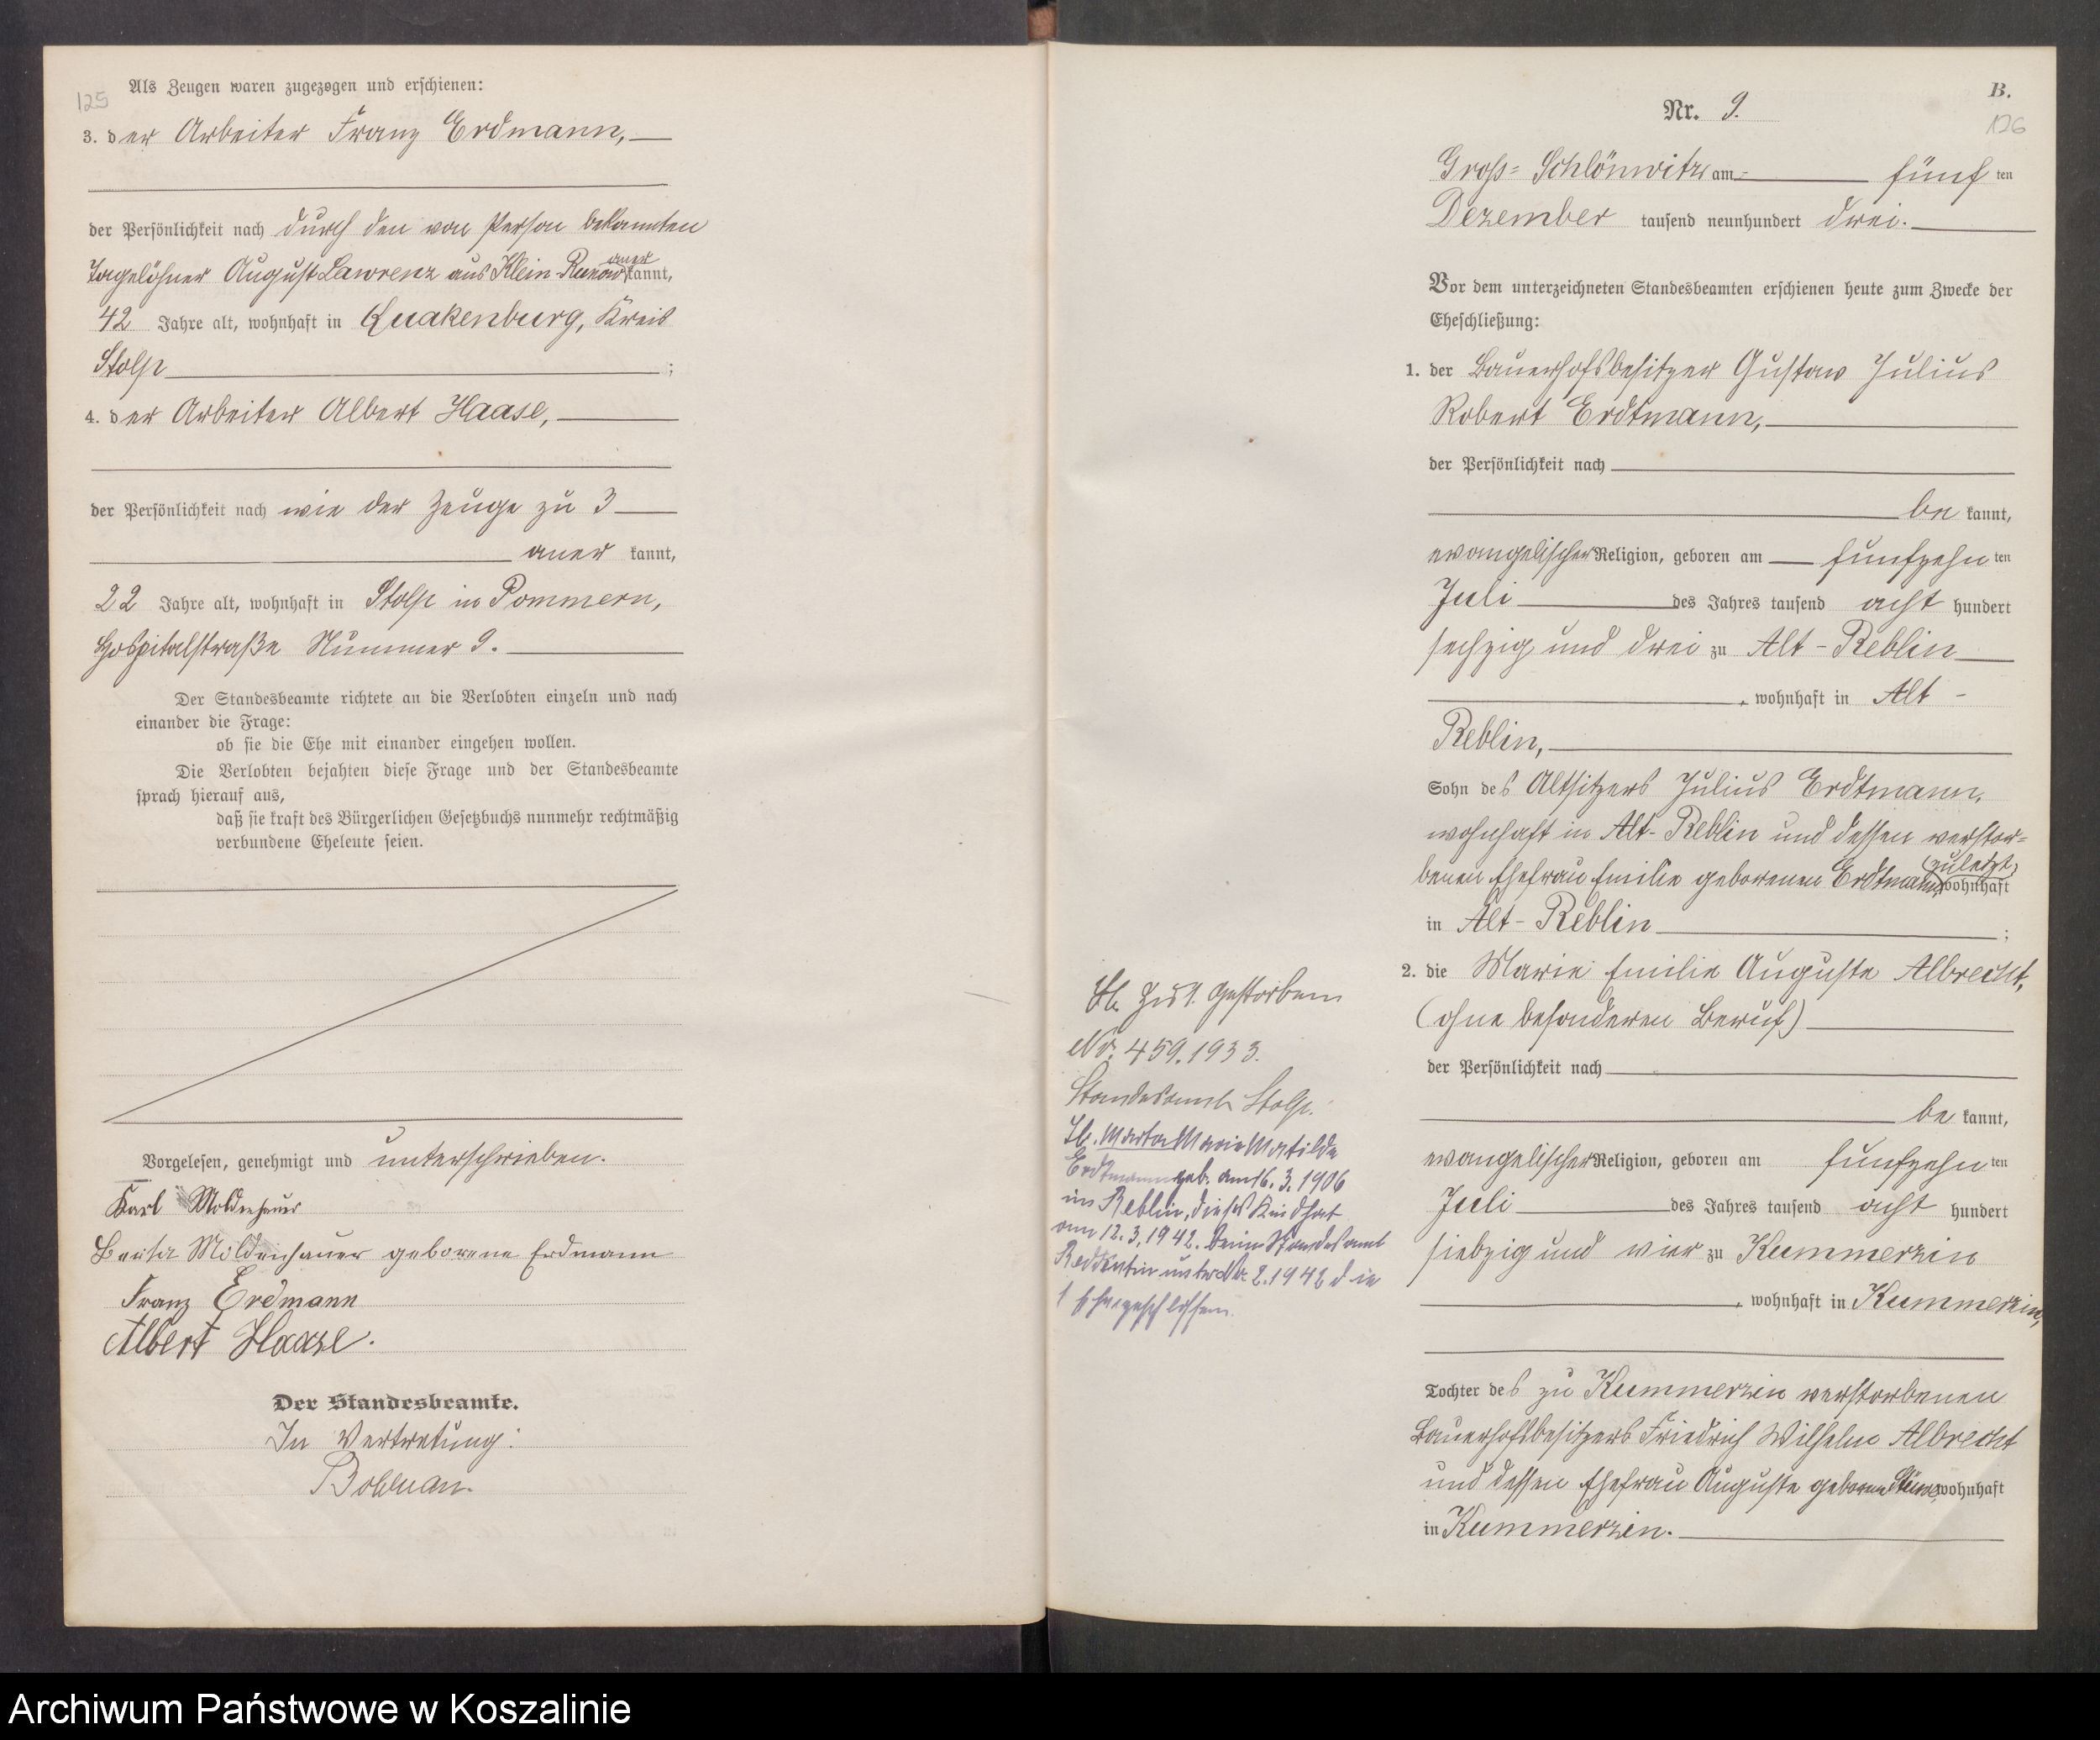 125
Als Zeugen waren zugezogen und erschienen:
3. der Arbeiter Franz Erdmann,
der Persönlichkeit nach durch den von Person bekannten
Tagelöhner August Lawrenz aus Klein-Runow anerkannt,
42 Jahre alt, wohnhaft in Quakenburg, Kreis
Stolp ;
4. der Arbeiter Albert Haase,
der Persönlichkeit nach wie der Zeuge zu 3
anerkannt,
22 Jahre alt, wohnhaft in Stolp in Pommern,
Hospitalstraße Nummer 9.
Der Standesbeamte richtete an die Verlobten einzeln und nach
einander die Frage:
ob sie die Ehe mit einander eingehen wollen.
Die Verlobten bejahten diese Frage und der Standesbeamte
sprach hierauf aus,
daß sie kraft des Bürgerlichen Gesetzbuchs nunmehr rechtmäßig
verbundene Eheleute seien.
Vorgelesen, genehmigt und unterschrieben.
Karl Moldenhauer
Moldenhauer geborene Erdmann
Franz Erdmann
Albert Haase.
Der Standesbeamte.
In Vertretung:
B.
Nr. 9.
126
Groß-Schlönwitz am fünften
Dezember tausend neunhundert drei.
Vor dem unterzeichneten Standesbeamten erschienen heute zum Zwecke der
Eheschließung:
1. der Bauerhofsbesitzer Gustav Julius
Robert Erdtmann,
der Persönlichkeit nach
bekannt,
evangelischer Religion, geboren am fünfzehnten
Juli des Jahres tausend achthundert
sechzig und drei zu Alt-Reblin
, wohnhaft in Alt-
Reblin,
Sohn des Altsitzers Julius Erdtmann,
wohnhaft in Alt-Reblin und dessen verstor-
benen Ehefrau Emilie geborenen Erdtmann, zuletzt wohnhaft
in Alt-Reblin ;
2. die Marie Emilie Auguste Albrecht,
(ohne besonderen Beruf)
der Persönlichkeit nach
bekannt,
evangelischer Religion, geboren am fünfzehnten
Juli des Jahres tausend achthundert
siebzig und vier zu Kummerzin
, wohnhaft in Kummerzin,
Tochter des zu Kummerzin verstorbenen
Bauerhofsbesitzers Friedrich Wilhelm Albrecht
und dessen Ehefrau Auguste geborene wohnhaft
in Kummerzin.
zu 1. gestorben
Nr. 459.1933.
Standesamt Stolp.
Marta Marie Matilde
Erdtmann geb. am 16.3.1906
in Reblin, dieses Kind hat
am 12.3.1942. beim Standesamt
Reddentin unter Nr. 2.1942 die
1 Ehe geschlossen.
Archiwum Państwowe w Koszalinie